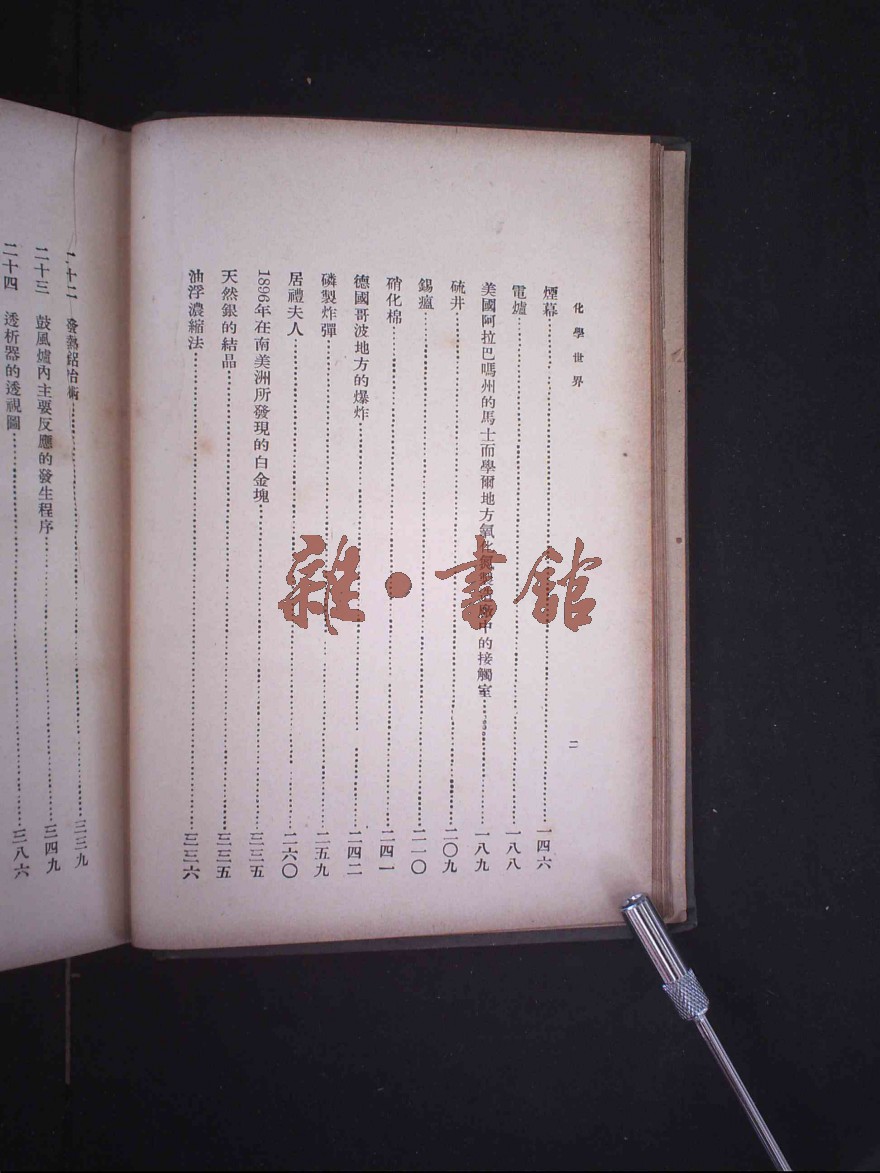 化學世界
二
煙幕……一四六
電爐……一八八
美國阿拉巴嗎州的馬士而學爾地方氧化 中的接觸室……一八九
硫井……二〇九
錫瘟……二一〇
硝化棉……二四一
德國哥波地方的爆炸……二四二
磷製炸彈……二五九
居禮夫人……二六〇
1896年在南美洲所發現的白金塊……三三五
天然銀的結晶……三三五
油浮濃縮法……三三六
二十二 發熱鋁冶術……三三九
二十三 鼓風爐內主要反應的發生程序……三四九
二十四 透析器的透視圖……三八六
雜·書館